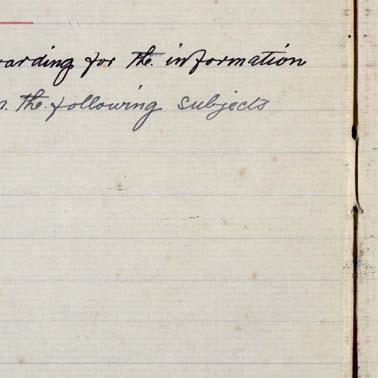 arding for the information
the following subjects